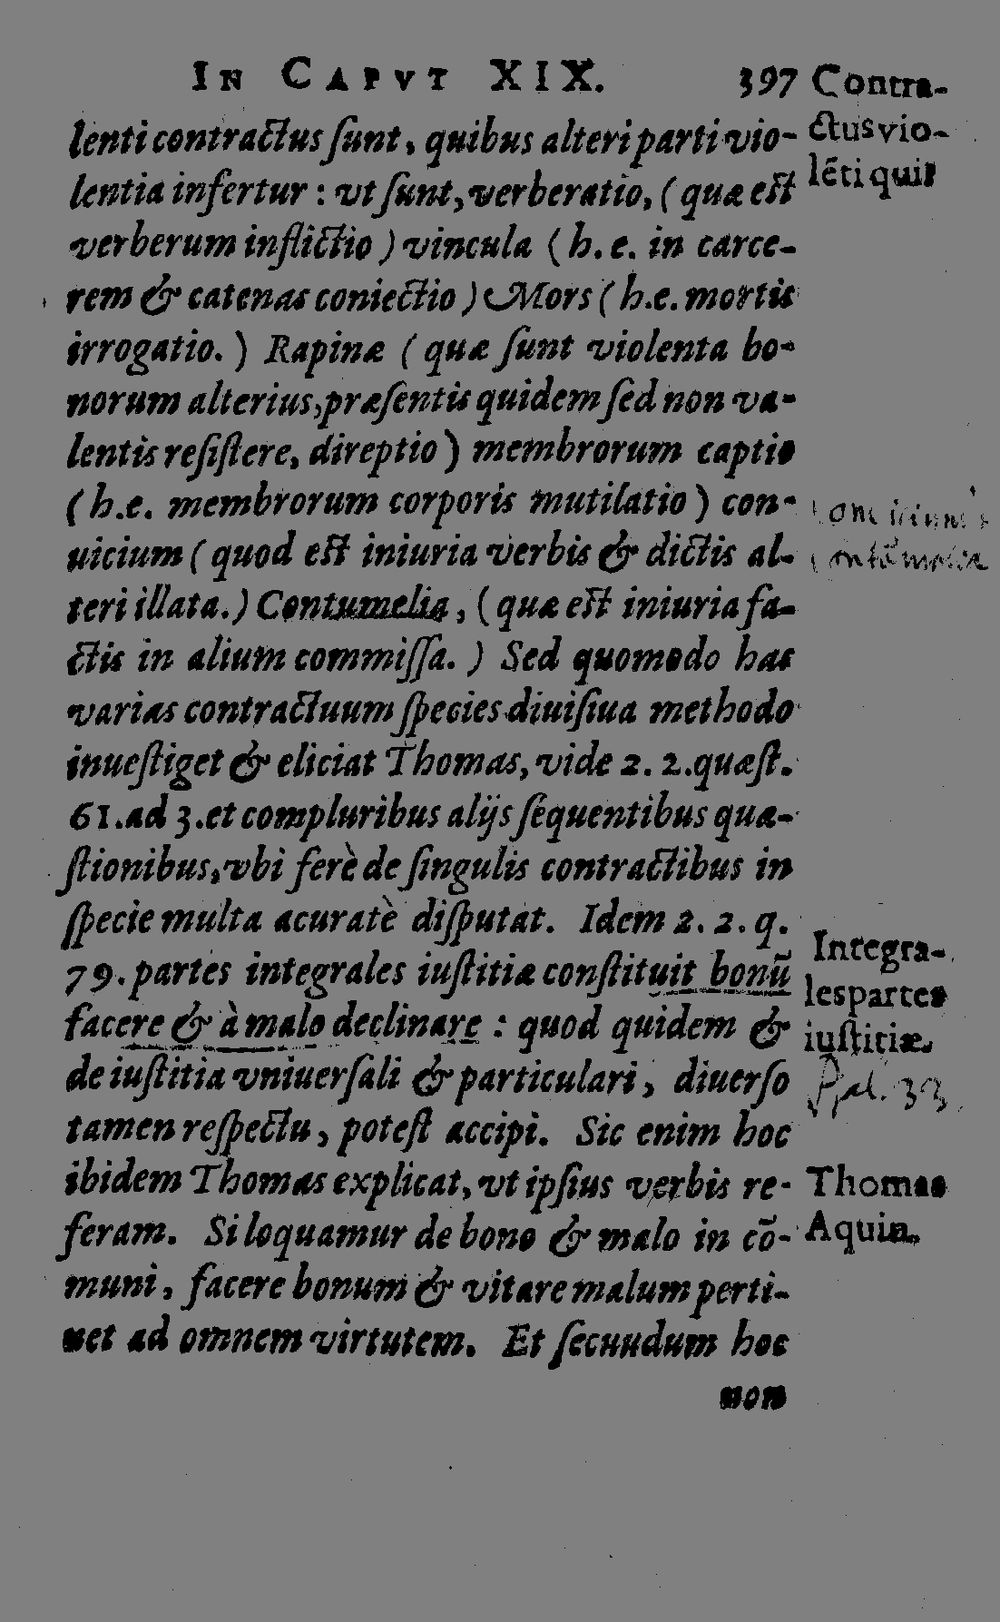 IN CAPVT XIX. 397
lenti contractus ſunt, quibus alteri parti vio-
lentia infertur: vt ſunt, verberatio, (quæ eſt
verberum inflictio) vincula (h.e. in carce-
rem & catenas coniectio) Mors (h.e. mortis
irrogatio.) Rapinæ (quæ ſunt violenta bo-
norum alterius, præſentis quidem ſed non va-
lentis reſiſtere, direptio) membrorum captio
(h.e. membrorum corporis mutilatio) con-
uicium (quod eſt iniuria verbis & dictis al-
teri illata.) Contumelia, (quæ eſt iniuria fa-
ctis in alium commiſſa.) Sed quomodo has
varias contractuum ſpecies diuiſiua methodo
inueſtiget & eliciat Thomas, vide 2. 2. quæſt.
61. ad 3. et compluribus alijs ſequentibus quæ-
ſtionibus, vbi ferè de ſingulis contractibus in
ſpecie multa acuratè diſputat. Idem 2. 2. q.
79. partes integrales iuſtitiæ conſtituit bonū
facere & à malo declinare: quod quidem &
de iuſtitia vniuerſali & particulari, diuerſo
tamen reſpectu, poteſt accipi. Sic enim hoc
ibidem Thomas explicat, vt ipſius verbis re-
feram. Si loquamur de bono & malo in cō-
muni, facere bonum & vitare malum perti-
net ad omnem virtutem. Et ſecundum hoc
non
Contra-
ctus vio-
lēti quis
Integra-
les partes
iuſtitiæ.
Pſal. 33.
Thomas
Aquin.